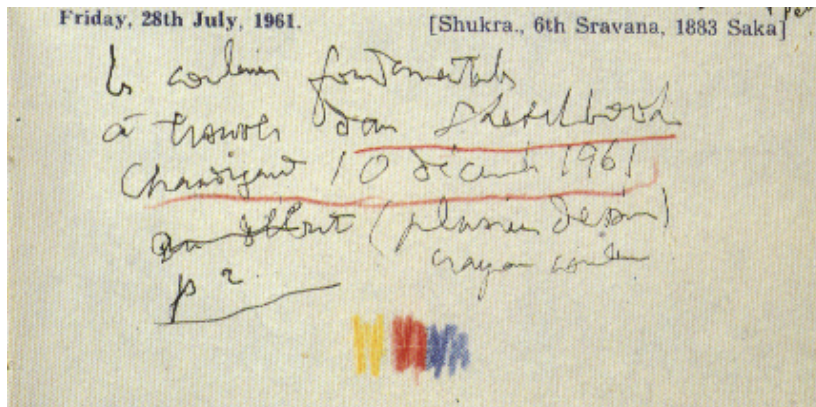 Friday, 28th July, 1961.
[Shukra., 6th Sravana, 1883 Saka]
Les couleurs fondamentales
à trouver dans Sketchbook
Chandigarh 10 décembre 1961
au début (plusieurs dessins)
crayon couleur
p 2.